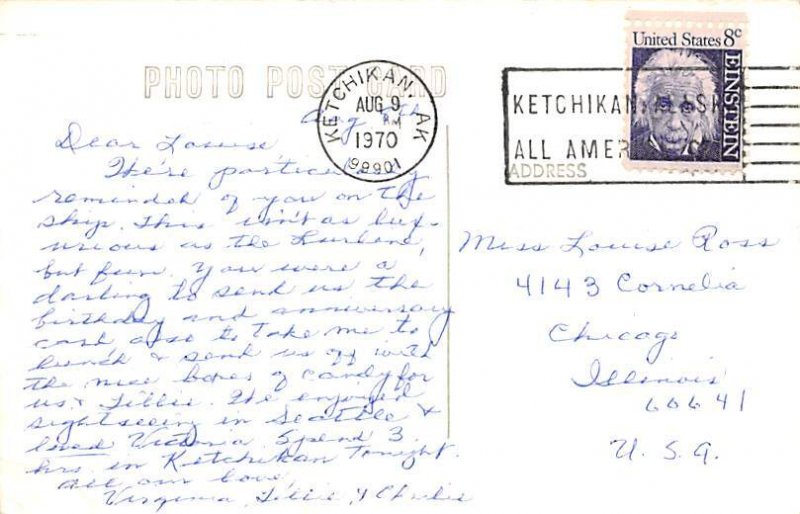 United States 8c
EINSTEIN
PHOTO POST CARD
KETCHIKAN, AK
AUG 9
PM
1970
99901
KETCHIKAN, ALASKA
ALL AMER
ADDRESS
Aug 9th
Dear Louise
We're particularly
reminded of you on the
ship. This isn't as lux-
urious as the
but fun. You were a
darling to send us the
birthday and anniversary
card also to take me to
lunch & send us off with
the nice boxes of candy for
us & Tillie. We enjoyed
sightseeing in Seattle &
loved Victoria. Spend 3
hrs. in Ketchikan tonight.
All our love,
Virginia, Tillie & Charlie
Miss Louise Ross
4143 Cornelia
Chicago
Illinois
60641
U. S. A.